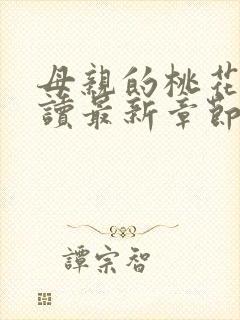 母親的桃花
讀最新章節
譚宗智